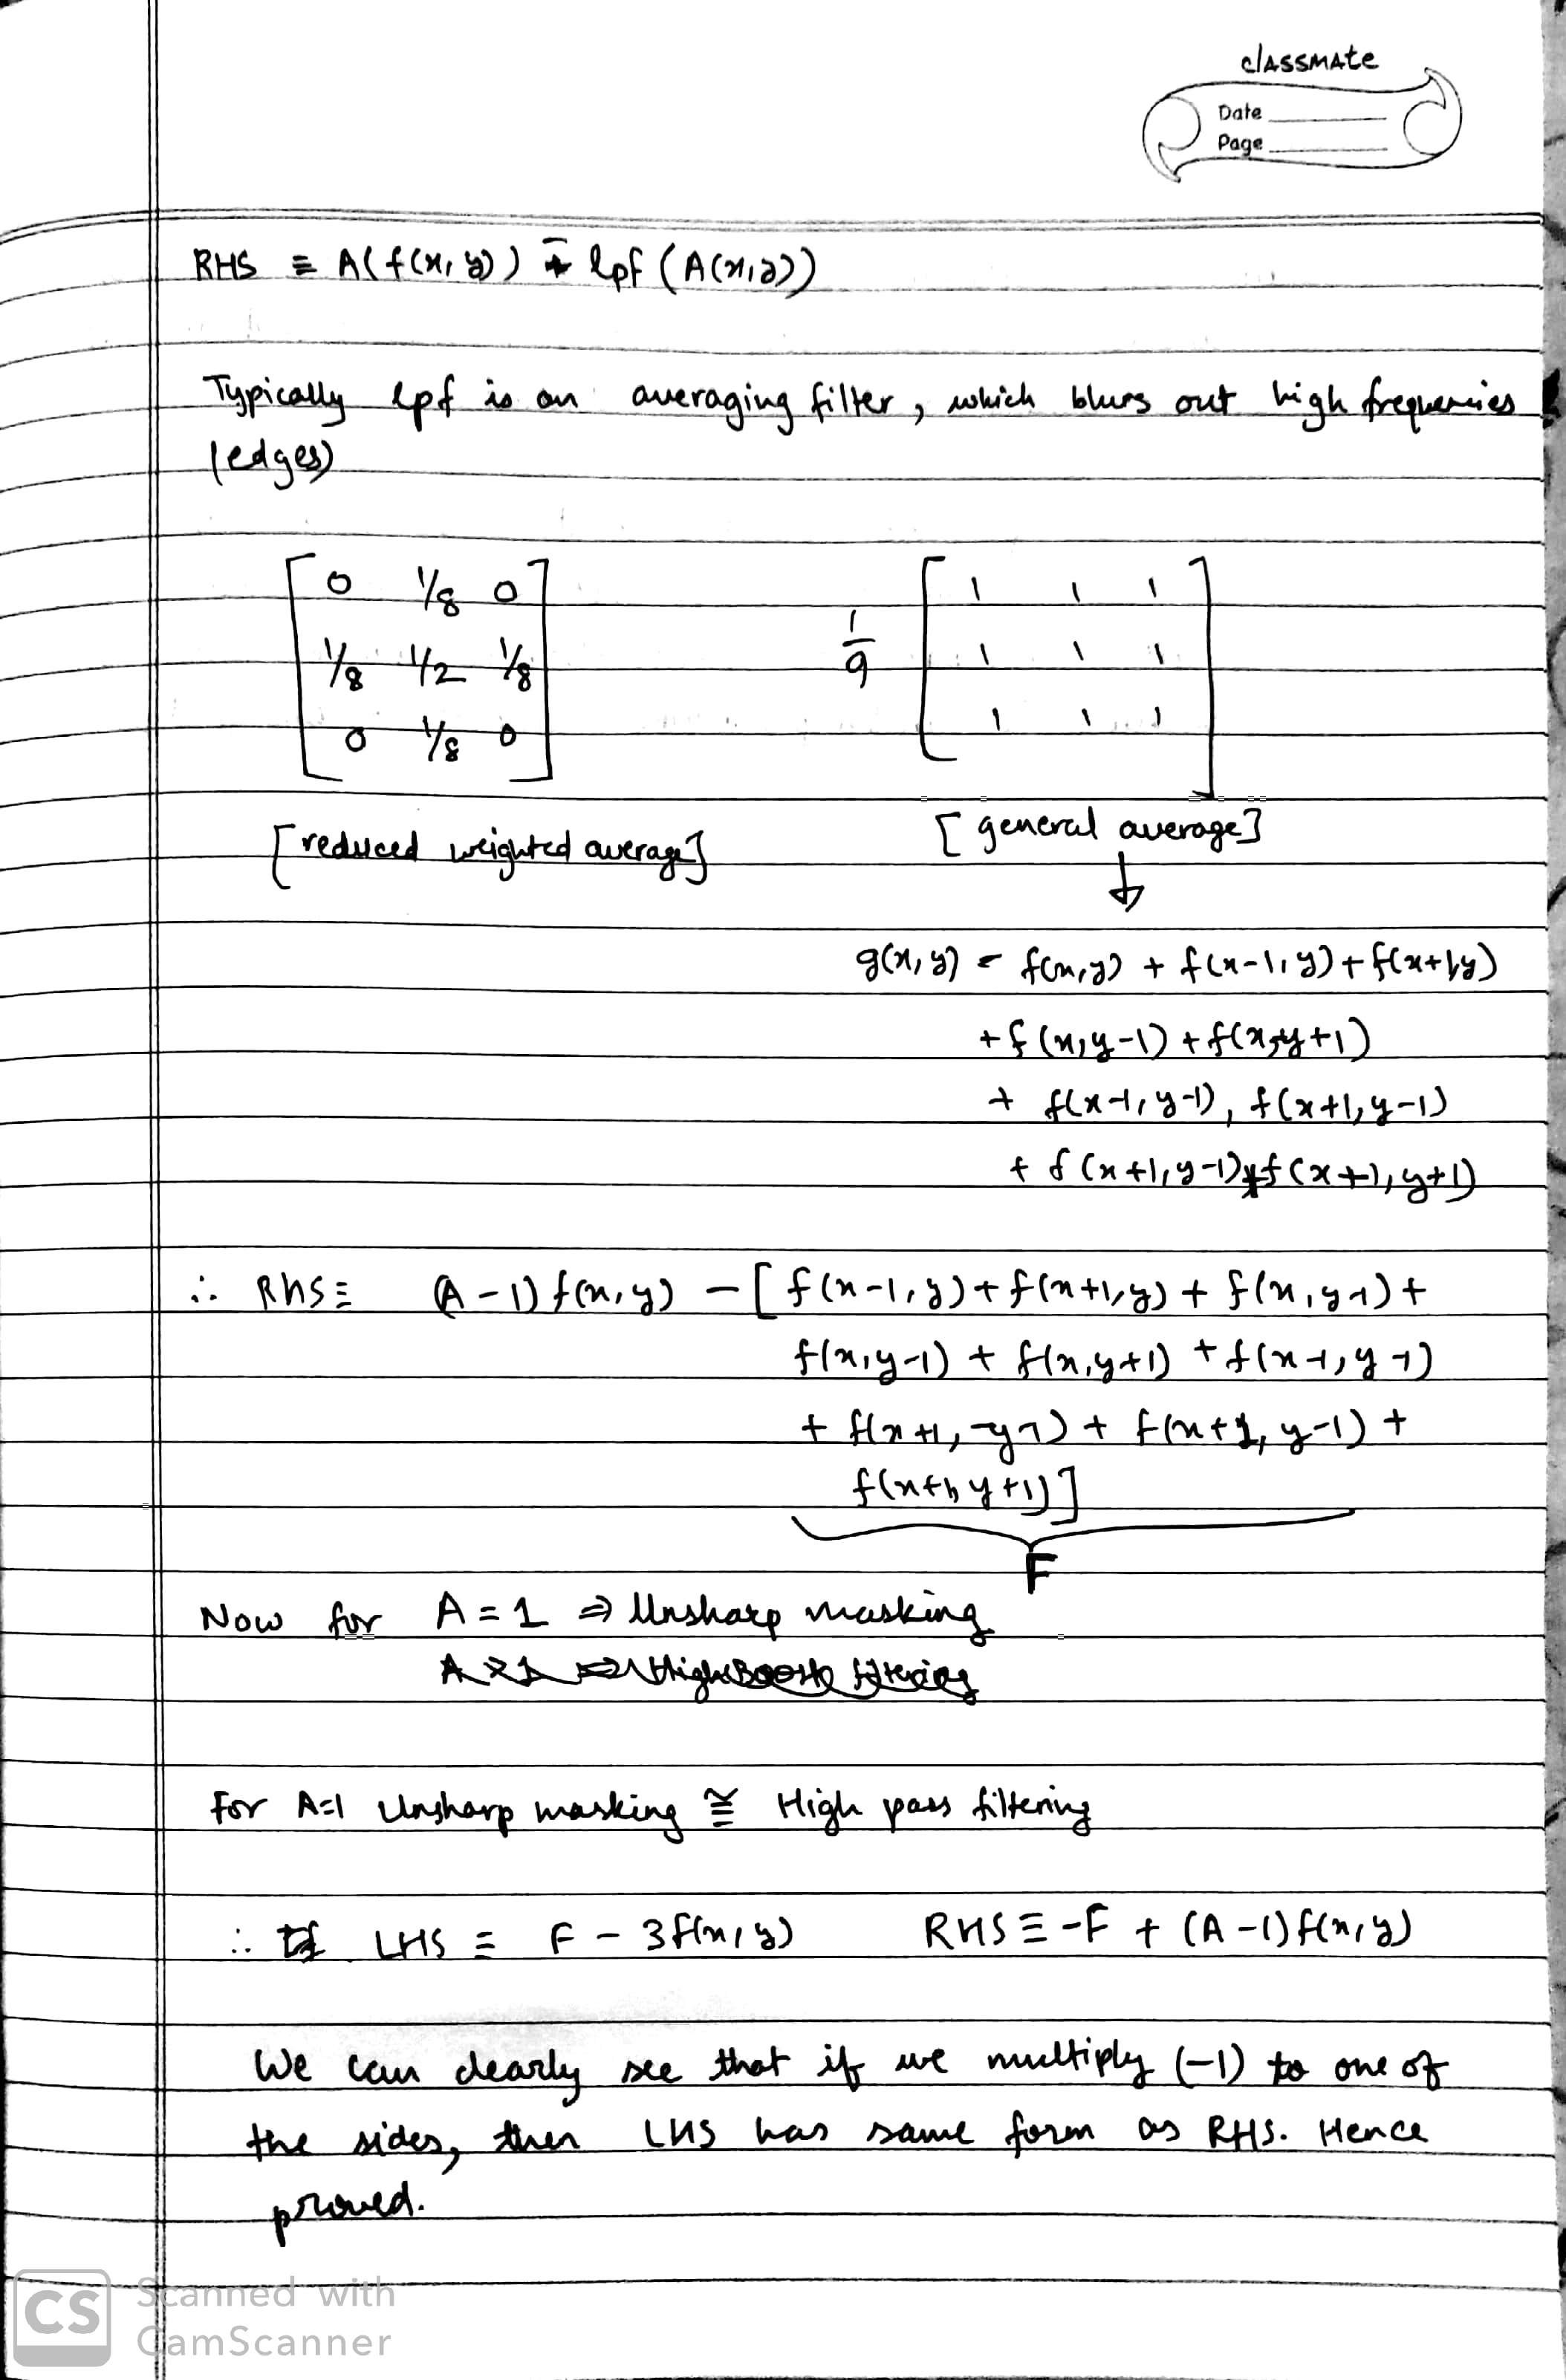 classmate
Date
Page
RHS ≡ A(f(x,y)) - lpf (A(x,y))
Typically lpf is an averaging filter, which blurs out high frequencies
(edges)
0 1/8 0
1/8 1/2 1/8
0 1/8 0
1/9
1 1 1
1 1 1
1 1 1
[reduced weighted average]
[general average]
↓
g(x,y) = f(x,y) + f(x-1,y) + f(x+1,y)
+ f(x,y-1) + f(x,y+1)
+ f(x-1,y-1), f(x+1,y-1)
+ f(x+1,y-1) + f(x+1,y+1)
∴ RHS ≡ (A-1) f(x,y) - [f(x-1,y) + f(x+1,y) + f(x,y-1) +
f(x,y-1) + f(x,y+1) + f(x-1,y-1)
+ f(x+1,-y-1) + f(x+1,y-1) +
f(x+1,y+1)]
F
Now for A=1 ⇒ Unsharp masking
For A=1 Unsharp masking ≅ High pass filtering
∴ LHS ≡ F - 3f(x,y) RHS ≡ -F + (A-1)f(x,y)
We can clearly see that if we multiply (-1) to one of
the sides, then LHS has same form as RHS. Hence
proved.
CS Scanned with
CamScanner